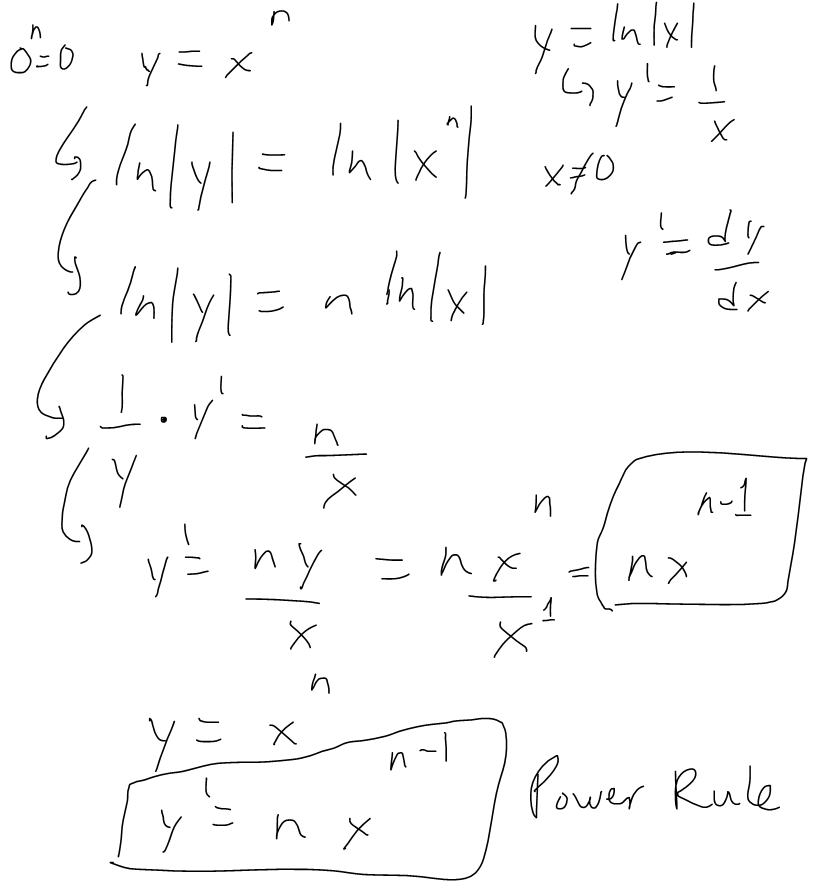 0ⁿ=0
y = xⁿ
y = ln|x|
↳ y' = 1/x
↳ ln|y| = ln|xⁿ|
x≠0
y' = dy/dx
↳ ln|y| = n ln|x|
↳ 1/y · y' = n/x
↳ y' = ny/x = nxⁿ/x¹ = nxⁿ⁻¹
y = xⁿ
y' = n xⁿ⁻¹
Power Rule